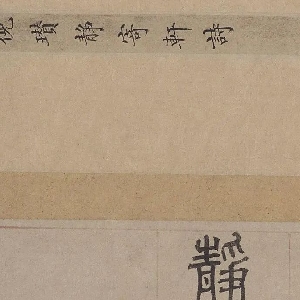 倪瓚靜寄軒詩
靜